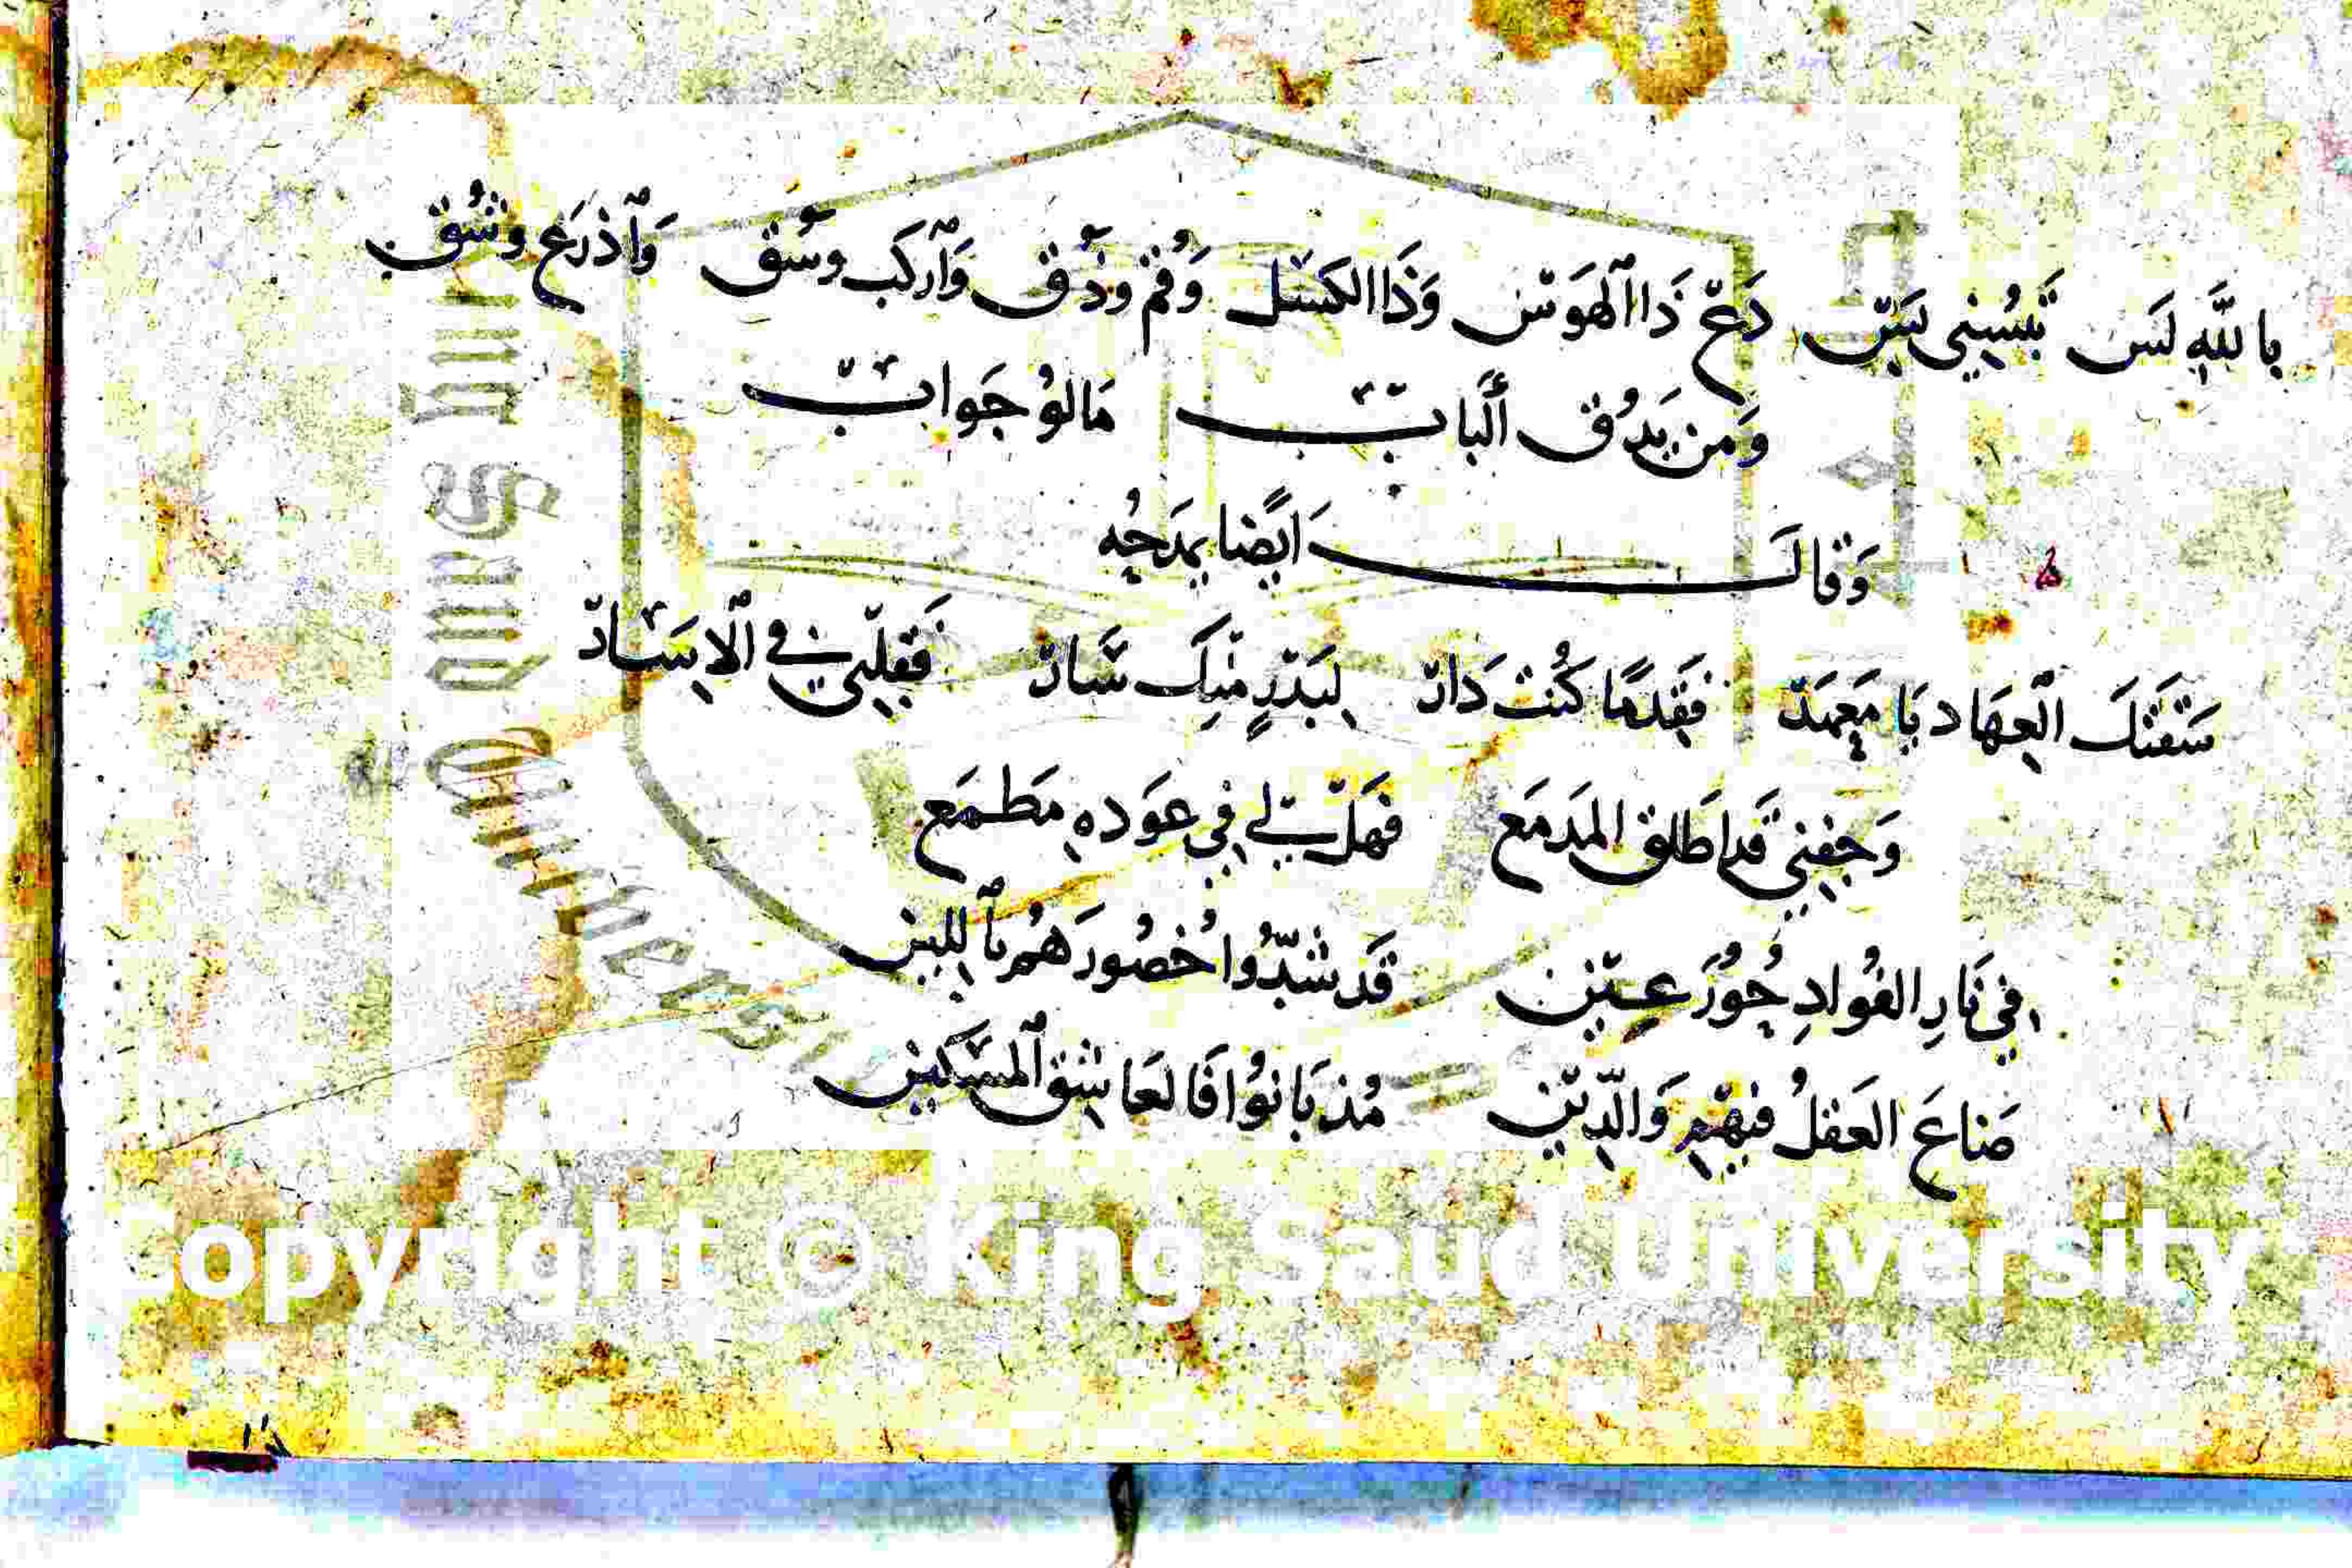 بالله لَس تَبْسُيني بَسّ دَعْ ذَا ٱلهَوَسْ وَذَا الكَسَل وَقُم وذُق وَٱركَب وسُق وَٱذرَع وشُق
وَمن يَدُق ٱلبابْ مَالوُ جَوابْ
وَقالَ ايضًا يمدَحُه
سَقَتكَ العِهَاد يَا مَعهَدْ فَقِدمًا كُنت دَارْ لِبَدْرٍ مِنكَ سَارْ فَقَلبي في الاِسَارْ
وَجَفني قَد اطَلق المَدمَع فَهَلْ لي في عَودهِ مَطمَع
في نَارِ الفُوادِ حُورُ عِينْ قَد شَدّوُا خُصُورَهُم بٱللين
ضاعَ العَقلُ فيهِم وَالدِّينْ مُذ بَانوُا فَالعَاشِق ٱلمسَكين
Copyright © King Saud University